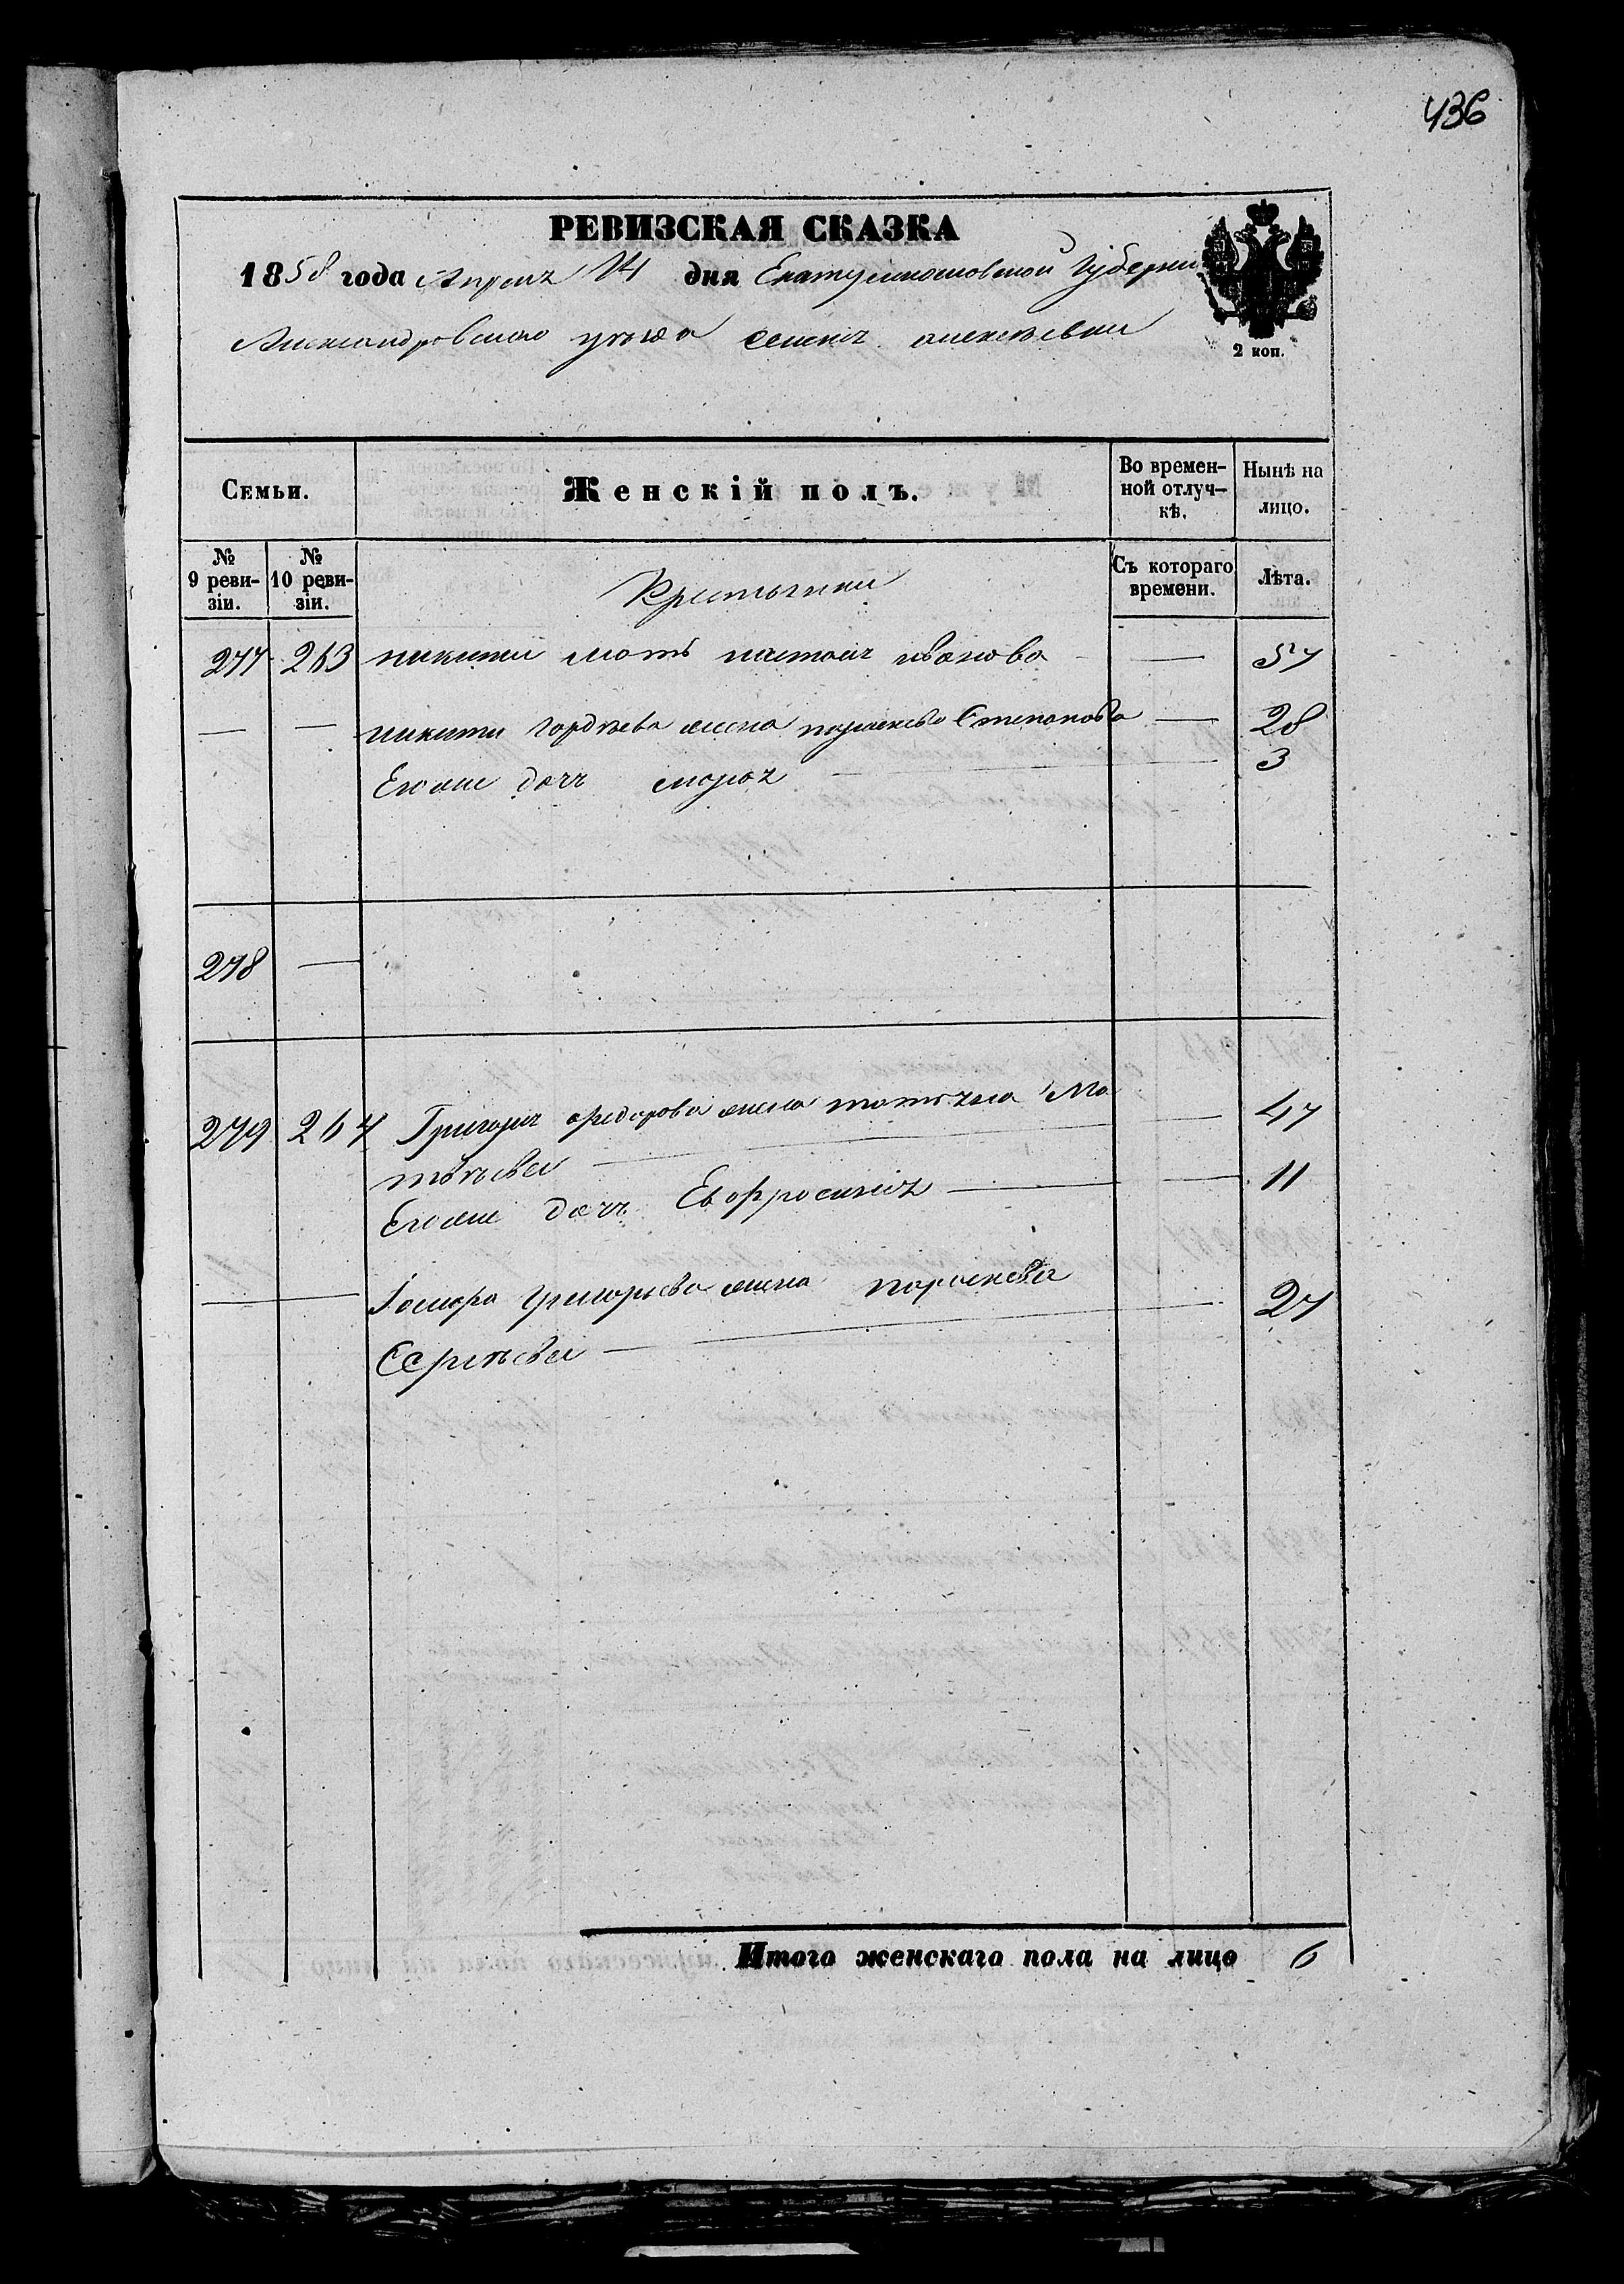 436
РЕВИЗСКАЯ СКАЗКА
1858 года Апреля 14 дня Екатеринославской Губернии
Александровскаго уезда селения алексеевки
2 коп.
Семьи.
Женскій полъ.
Во времен-
ной отлуч-
кѣ.
Нынѣ на
лицо.
№
9 реви-
зіи.
№
10 реви-
зіи.
Съ котораго
времени.
Лѣта.
Крестьянки
277 263 никиты мать настася иванова — 57
— — никиты Гордѣева жена парасковья Степанова — 28
Его же дочь марья — 3
278 —
279 264 Григорья федорова жена татьяна Ма
твѣева — 47
Его же дочь Евфросинья — 11
— григорьева жена парасковья
Сергѣева — 27
Итого женскаго пола на лицо 6